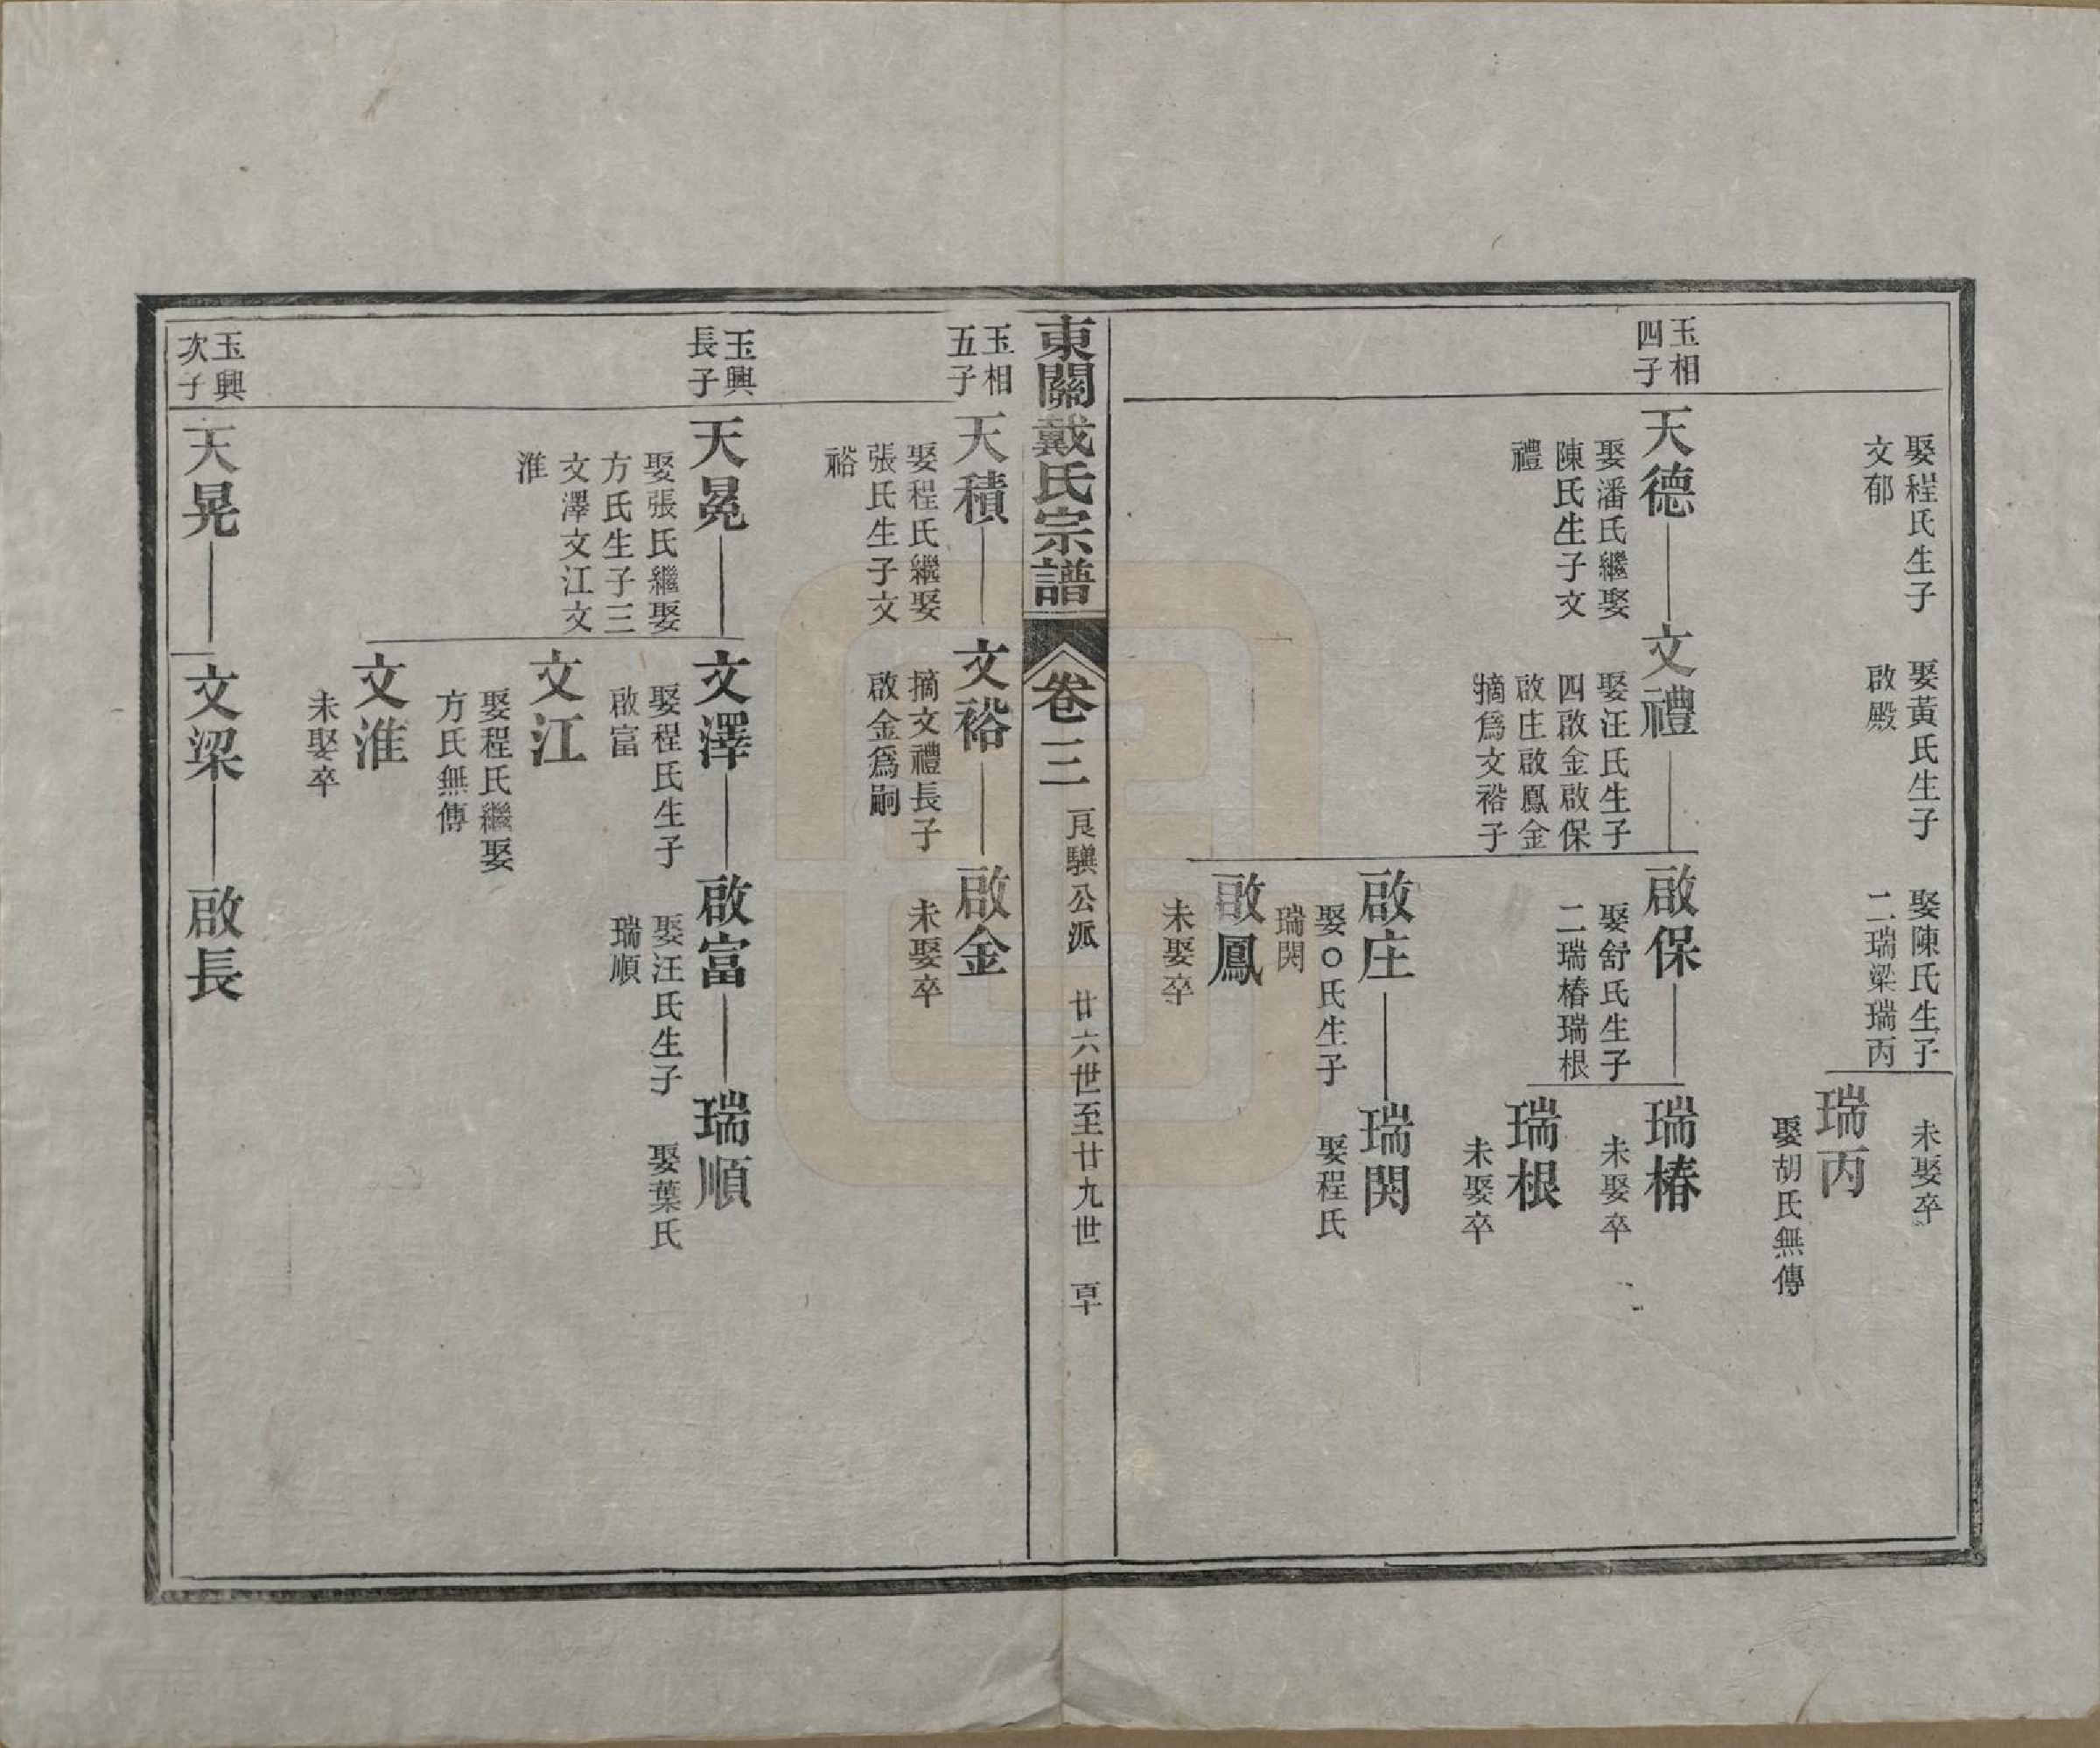 娶程氏生子
文郁
娶黃氏生子
啟殿
娶陳氏生子
二瑞梁瑞丙
未娶卒
瑞丙
娶胡氏無傳
玉相
四子
天德
娶潘氏繼娶
陳氏生子文
禮
文禮
娶汪氏生子
四啟金啟保
啟庄啟鳳金
摘爲文裕子
啟保
娶舒氏生子
二瑞椿瑞根
瑞椿
未娶卒
瑞根
未娶卒
啟庄
娶○氏生子
瑞閔
瑞閔
娶程氏
啟鳳
未娶卒
東關戴氏宗譜
卷三
良驥公派
廿六世至廿九世
玉相
五子
天積
娶程氏繼娶
張氏生子文
裕
文裕
摘文禮長子
啟金爲嗣
啟金
未娶卒
玉興
長子
天冕
娶張氏繼娶
方氏生子三
文澤文江文
淮
文澤
娶程氏生子
啟富
啟富
娶汪氏生子
瑞順
瑞順
娶葉氏
文江
娶程氏繼娶
方氏無傳
文淮
未娶卒
玉興
次子
天晃
文梁
啟長